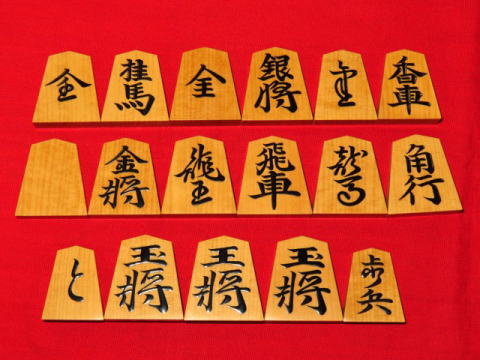 桂馬 全 銀将 香車
金将 龍王 飛車 龍馬 角行
と 玉将 王将 玉将 歩兵